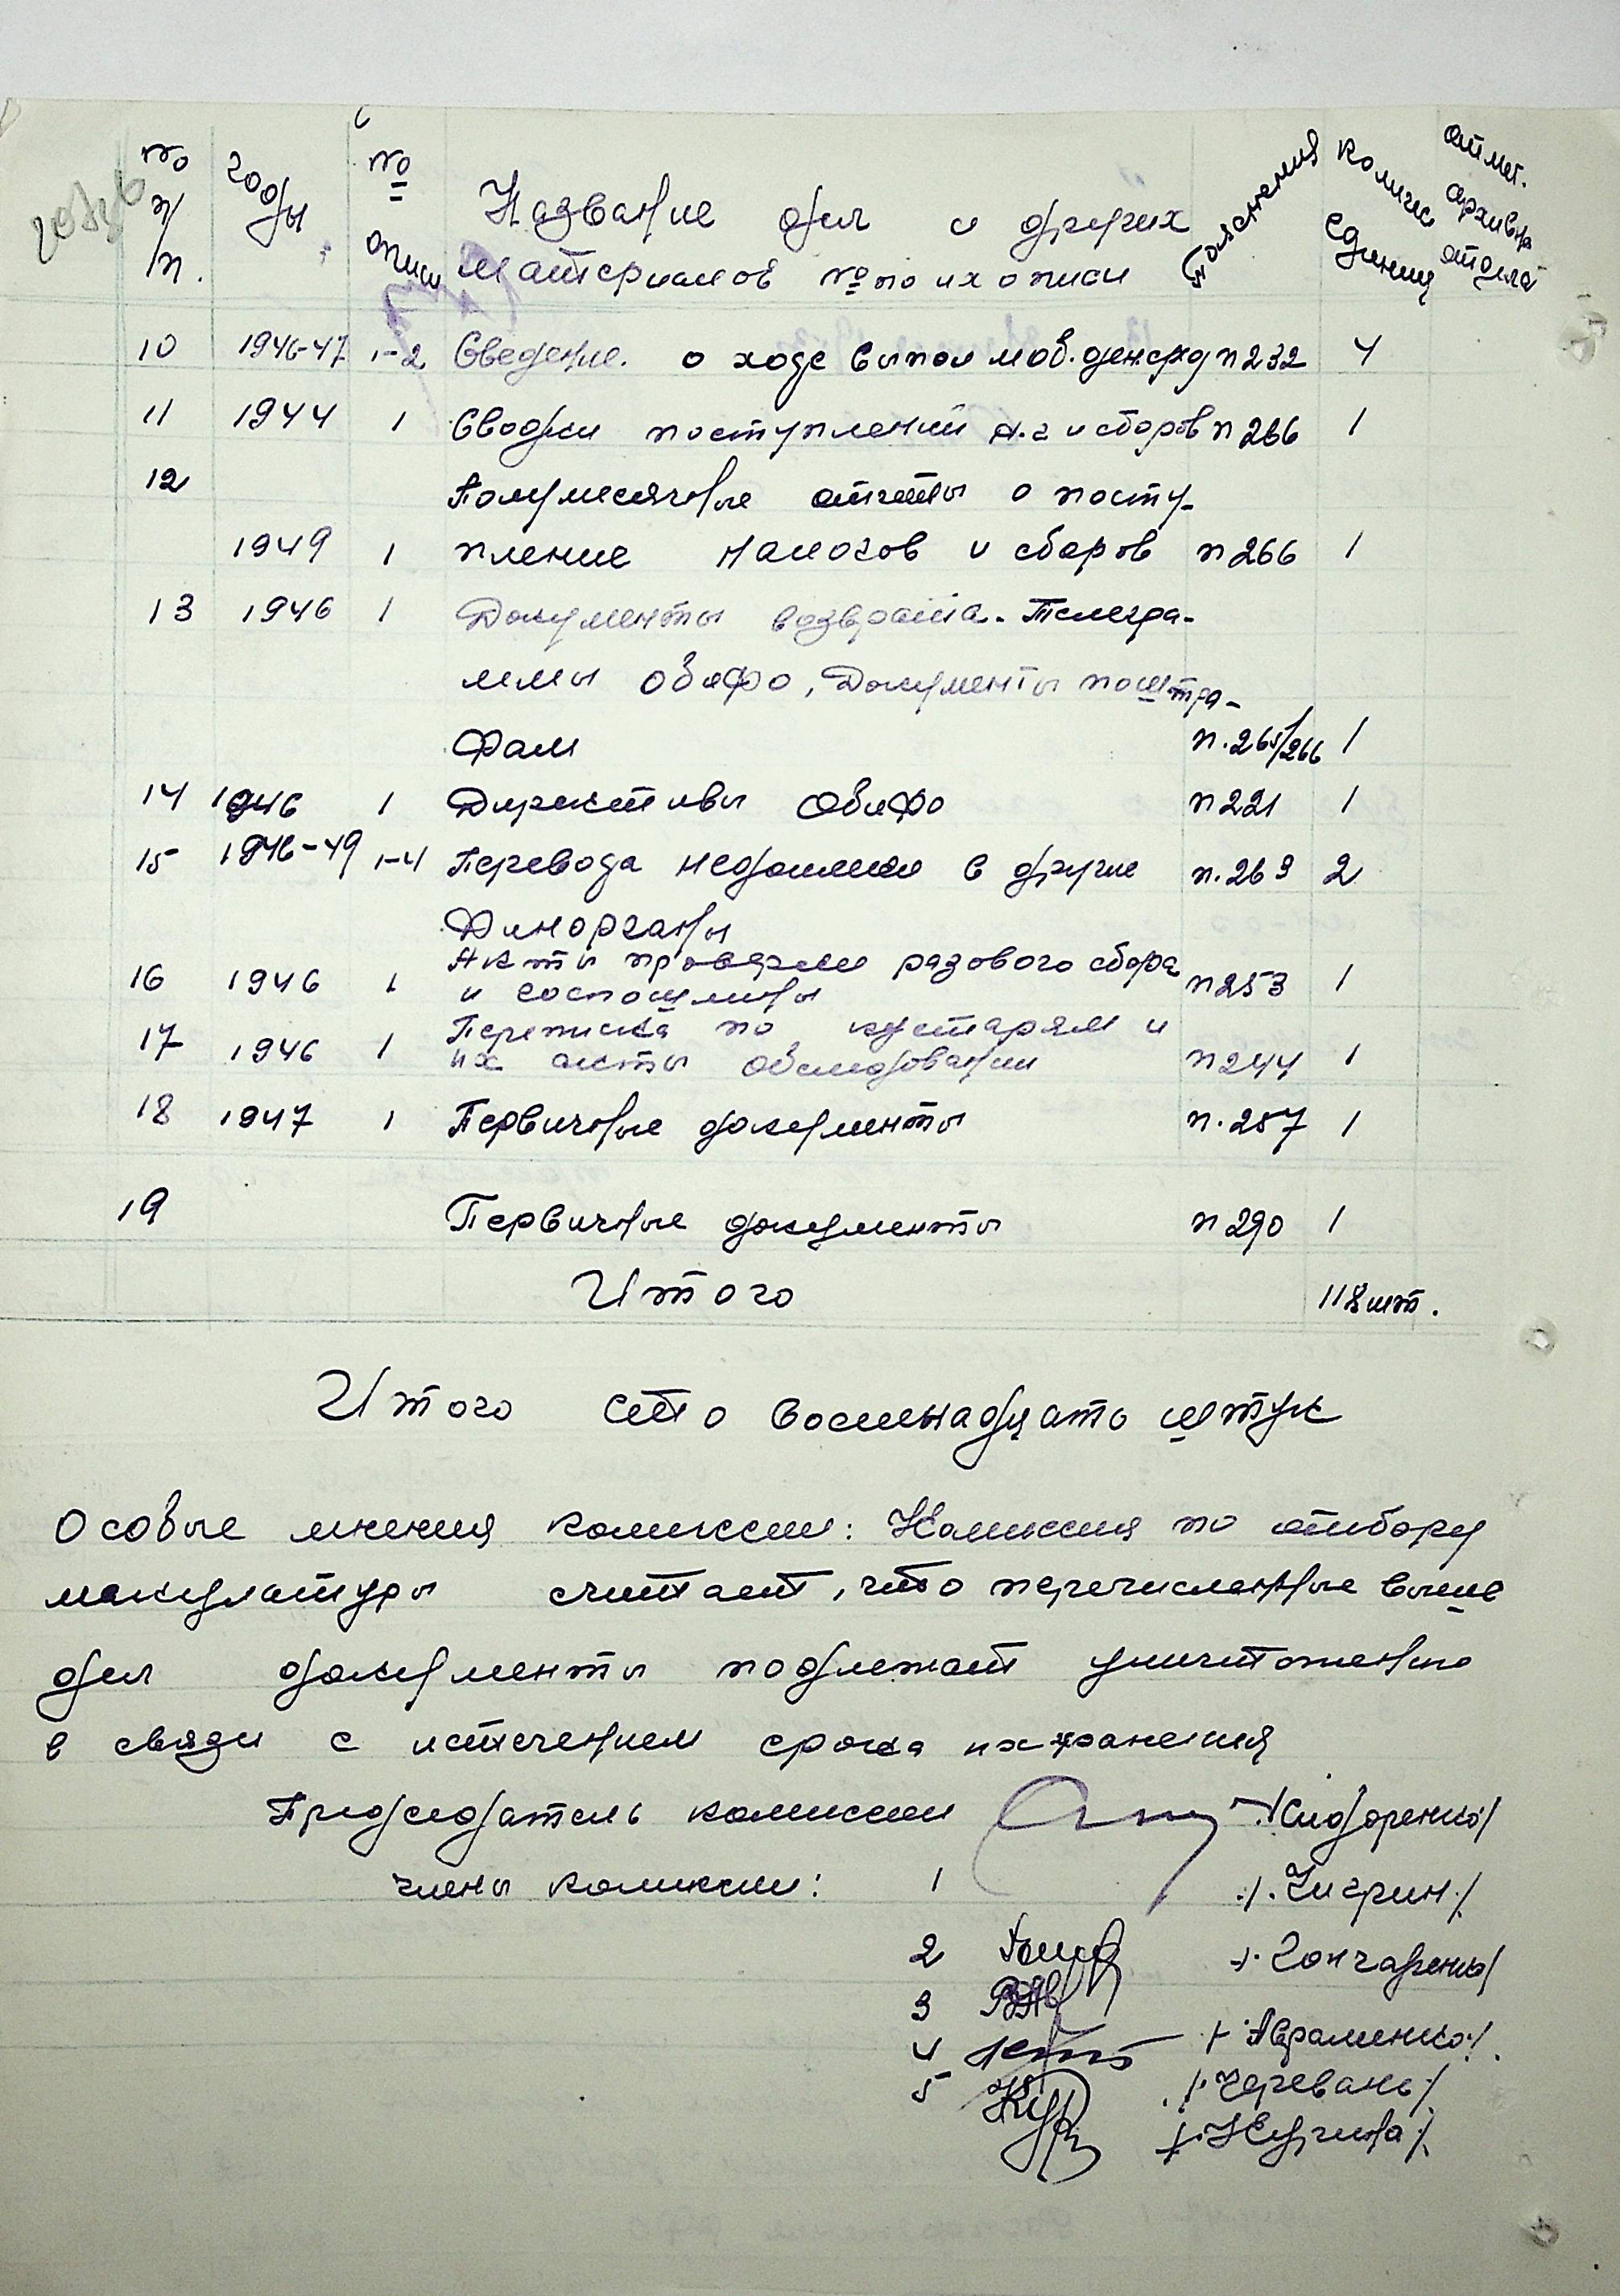 № п/п. годы № описи Название дел и других материалов № по их описи Пояснения Количес единиц отмет. архивн отдела
10 1946-47 1-2 Сведение. о ходе выпол моб. ден. сред п 232 4
11 1944 1 Сводки поступлений н.г и сборов п 266 1
12 Полумесячные отчеты о посту-
1949 1 пление налогов и сборов п 266 1
13 1946 1 Документы возврата. Телегра-
ммы ОблФО, Документы по штра-
фам п. 265/266 1
14 1946 1 Директивы ОблФО п 221 1
15 1946-49 1-4 Перевода недоимки в другие п. 269 2
Финорганы
16 1946 1 Акты проверки разового сбора
и госпошлины п 253 1
17 1946 1 Переписка по кустарям и
их акты обследования п 244 1
18 1947 1 Первичные документы п. 257 1
19 Первичные документы п 290 1
Итого 118 шт.
Итого сто восемнадцать штук
Особые мнения комиссии: Комиссия по отбору
макулатуры считает, что перечисленные выше
дел документы подлежат уничтожению
в связи с истечением срока их хранения
Председатель комиссии /Сидоренко/
члены комиссии: 1 /. Чигрин./
2 /. Гончаренко/
3 /. Авраменко./
4 /. Черевань./
5 /. Кучина./